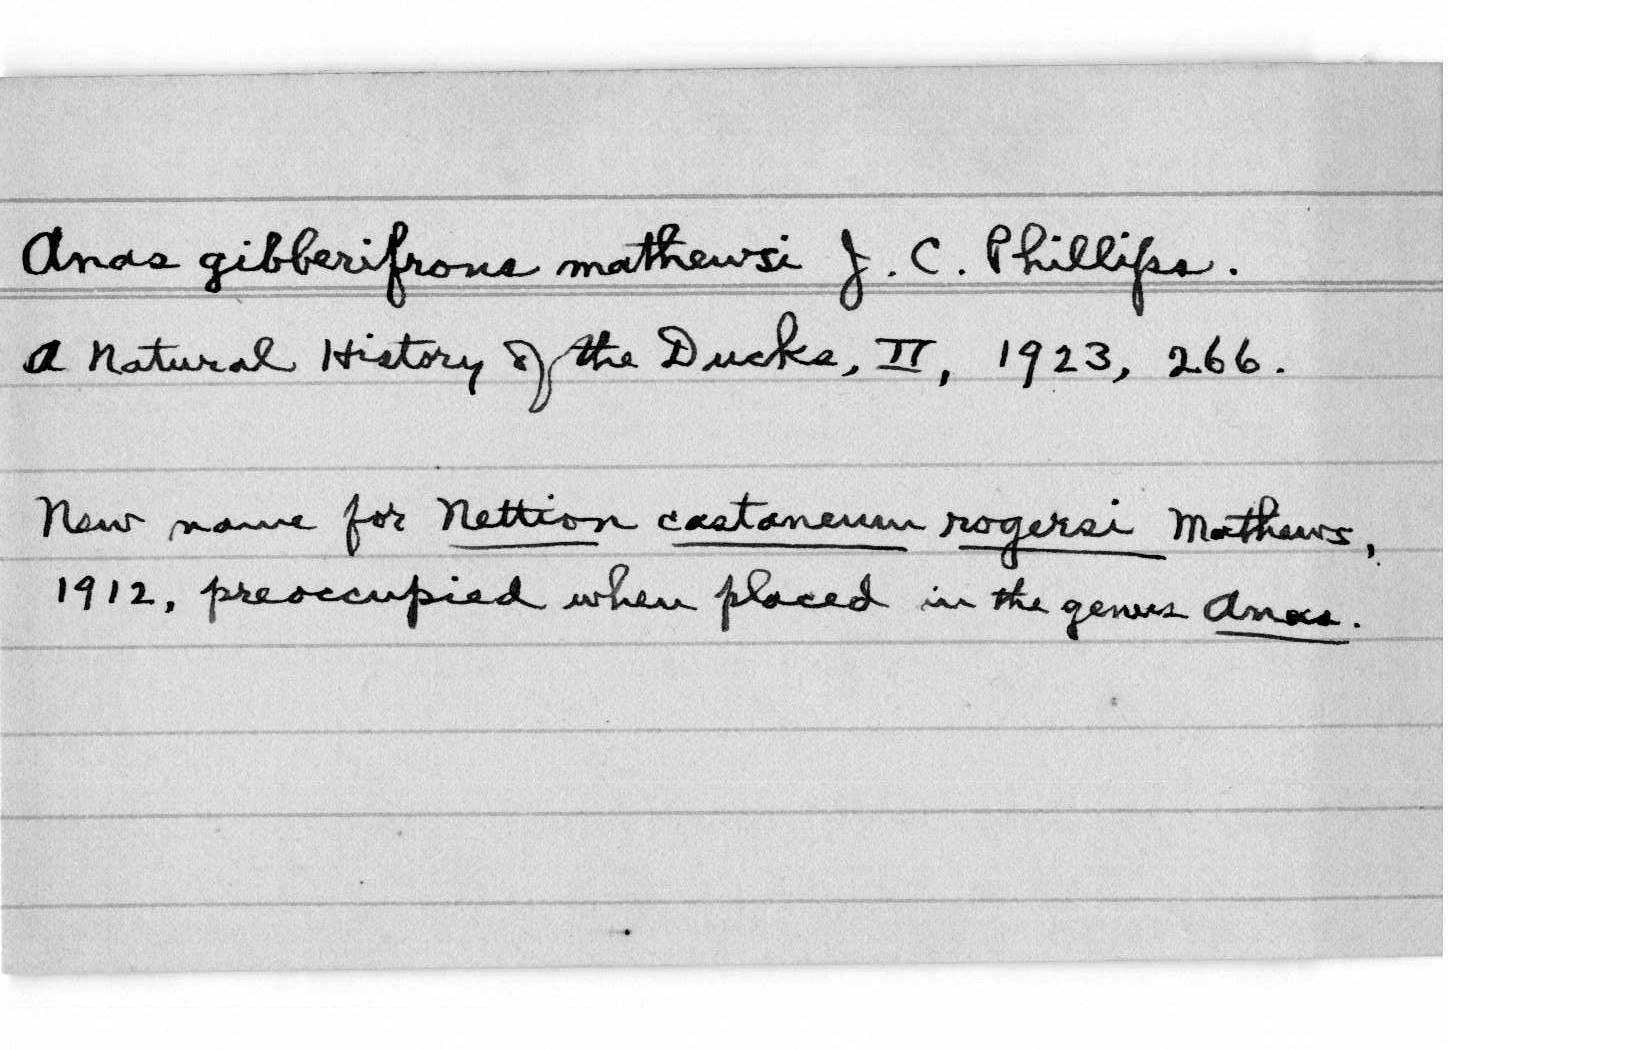 Anas gibberifrons mathewsi J. C. Phillips.
A Natural History of the Ducks, II, 1923, 266.
New name for Nettion castaneum rogersi Mathews,
1912, preoccupied when placed in the genus Anas.